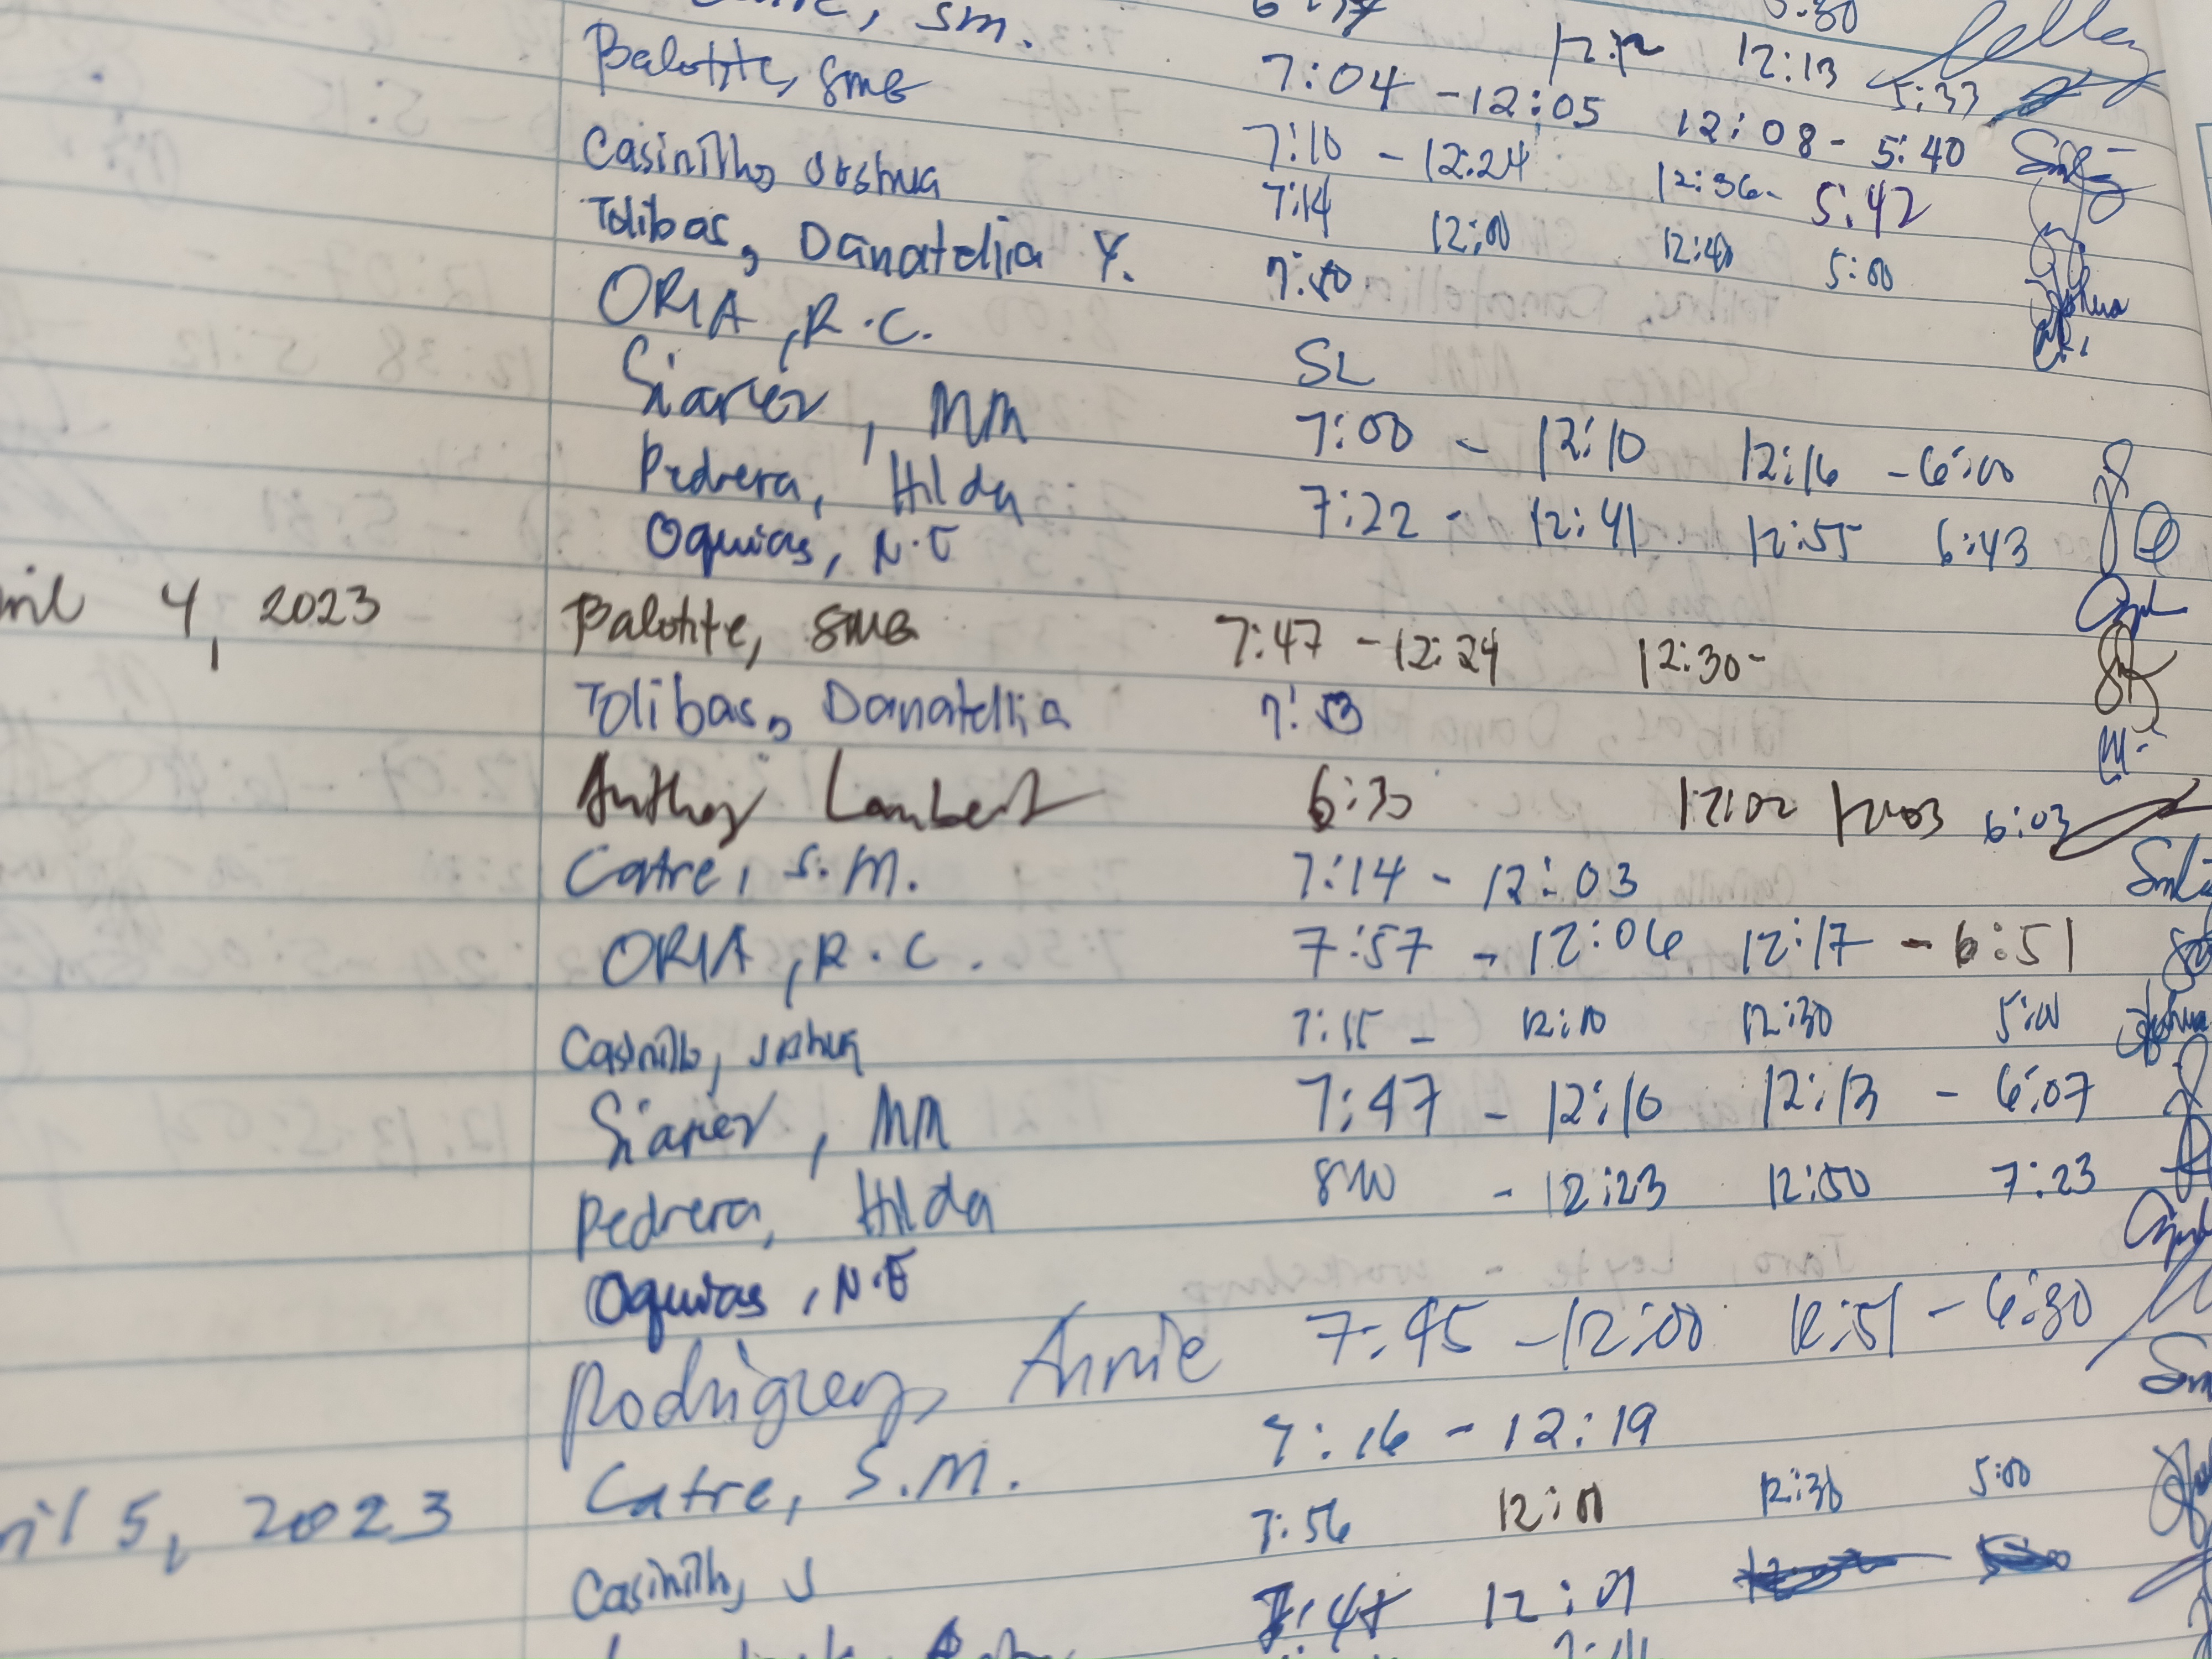 12:12 12:13 5:33
sm. 7:04 - 12:05 12:08 - 5:40
Balotite, SMB 7:10 - 12:24 12:36 - 5:42
Casinillo, Joshua 7:14 12:00 12:40 5:00
Tolibas, Danatellia Y. 7:50
ORIA, R.C. SL
Siarez, MM 7:00 - 12:10 12:16 - 6:00
Pedrera, Hilda 7:22 - 12:41 12:55 6:43
Oquias, N.E
4, 2023 Balotite, SMB 7:47 - 12:24 12:30 -
Tolibas, Danatellia 7:53
Anthony Lambert 6:30 12:02 12:03 6:03
Catre, S.M. 7:14 - 12:03
ORIA, R.C. 7:57 - 12:06 12:17 - 6:51
Casinillo, Joshua 7:55 - 12:00 12:30 5:00
Siarez, MM 7:47 - 12:10 12:13 - 6:07
Pedrera, Hilda 8:00 - 12:23 12:50 7:23
Oquias, N.E
Rodriguez, Annie 7:45 - 12:00 12:51 - 6:30
5, 2023 Catre, S.M. 7:16 - 12:19
Casinillo, J 7:56 12:00 12:30 5:00
12:01